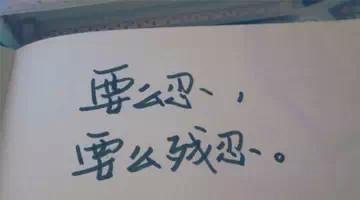 要么忍，
要么残忍。